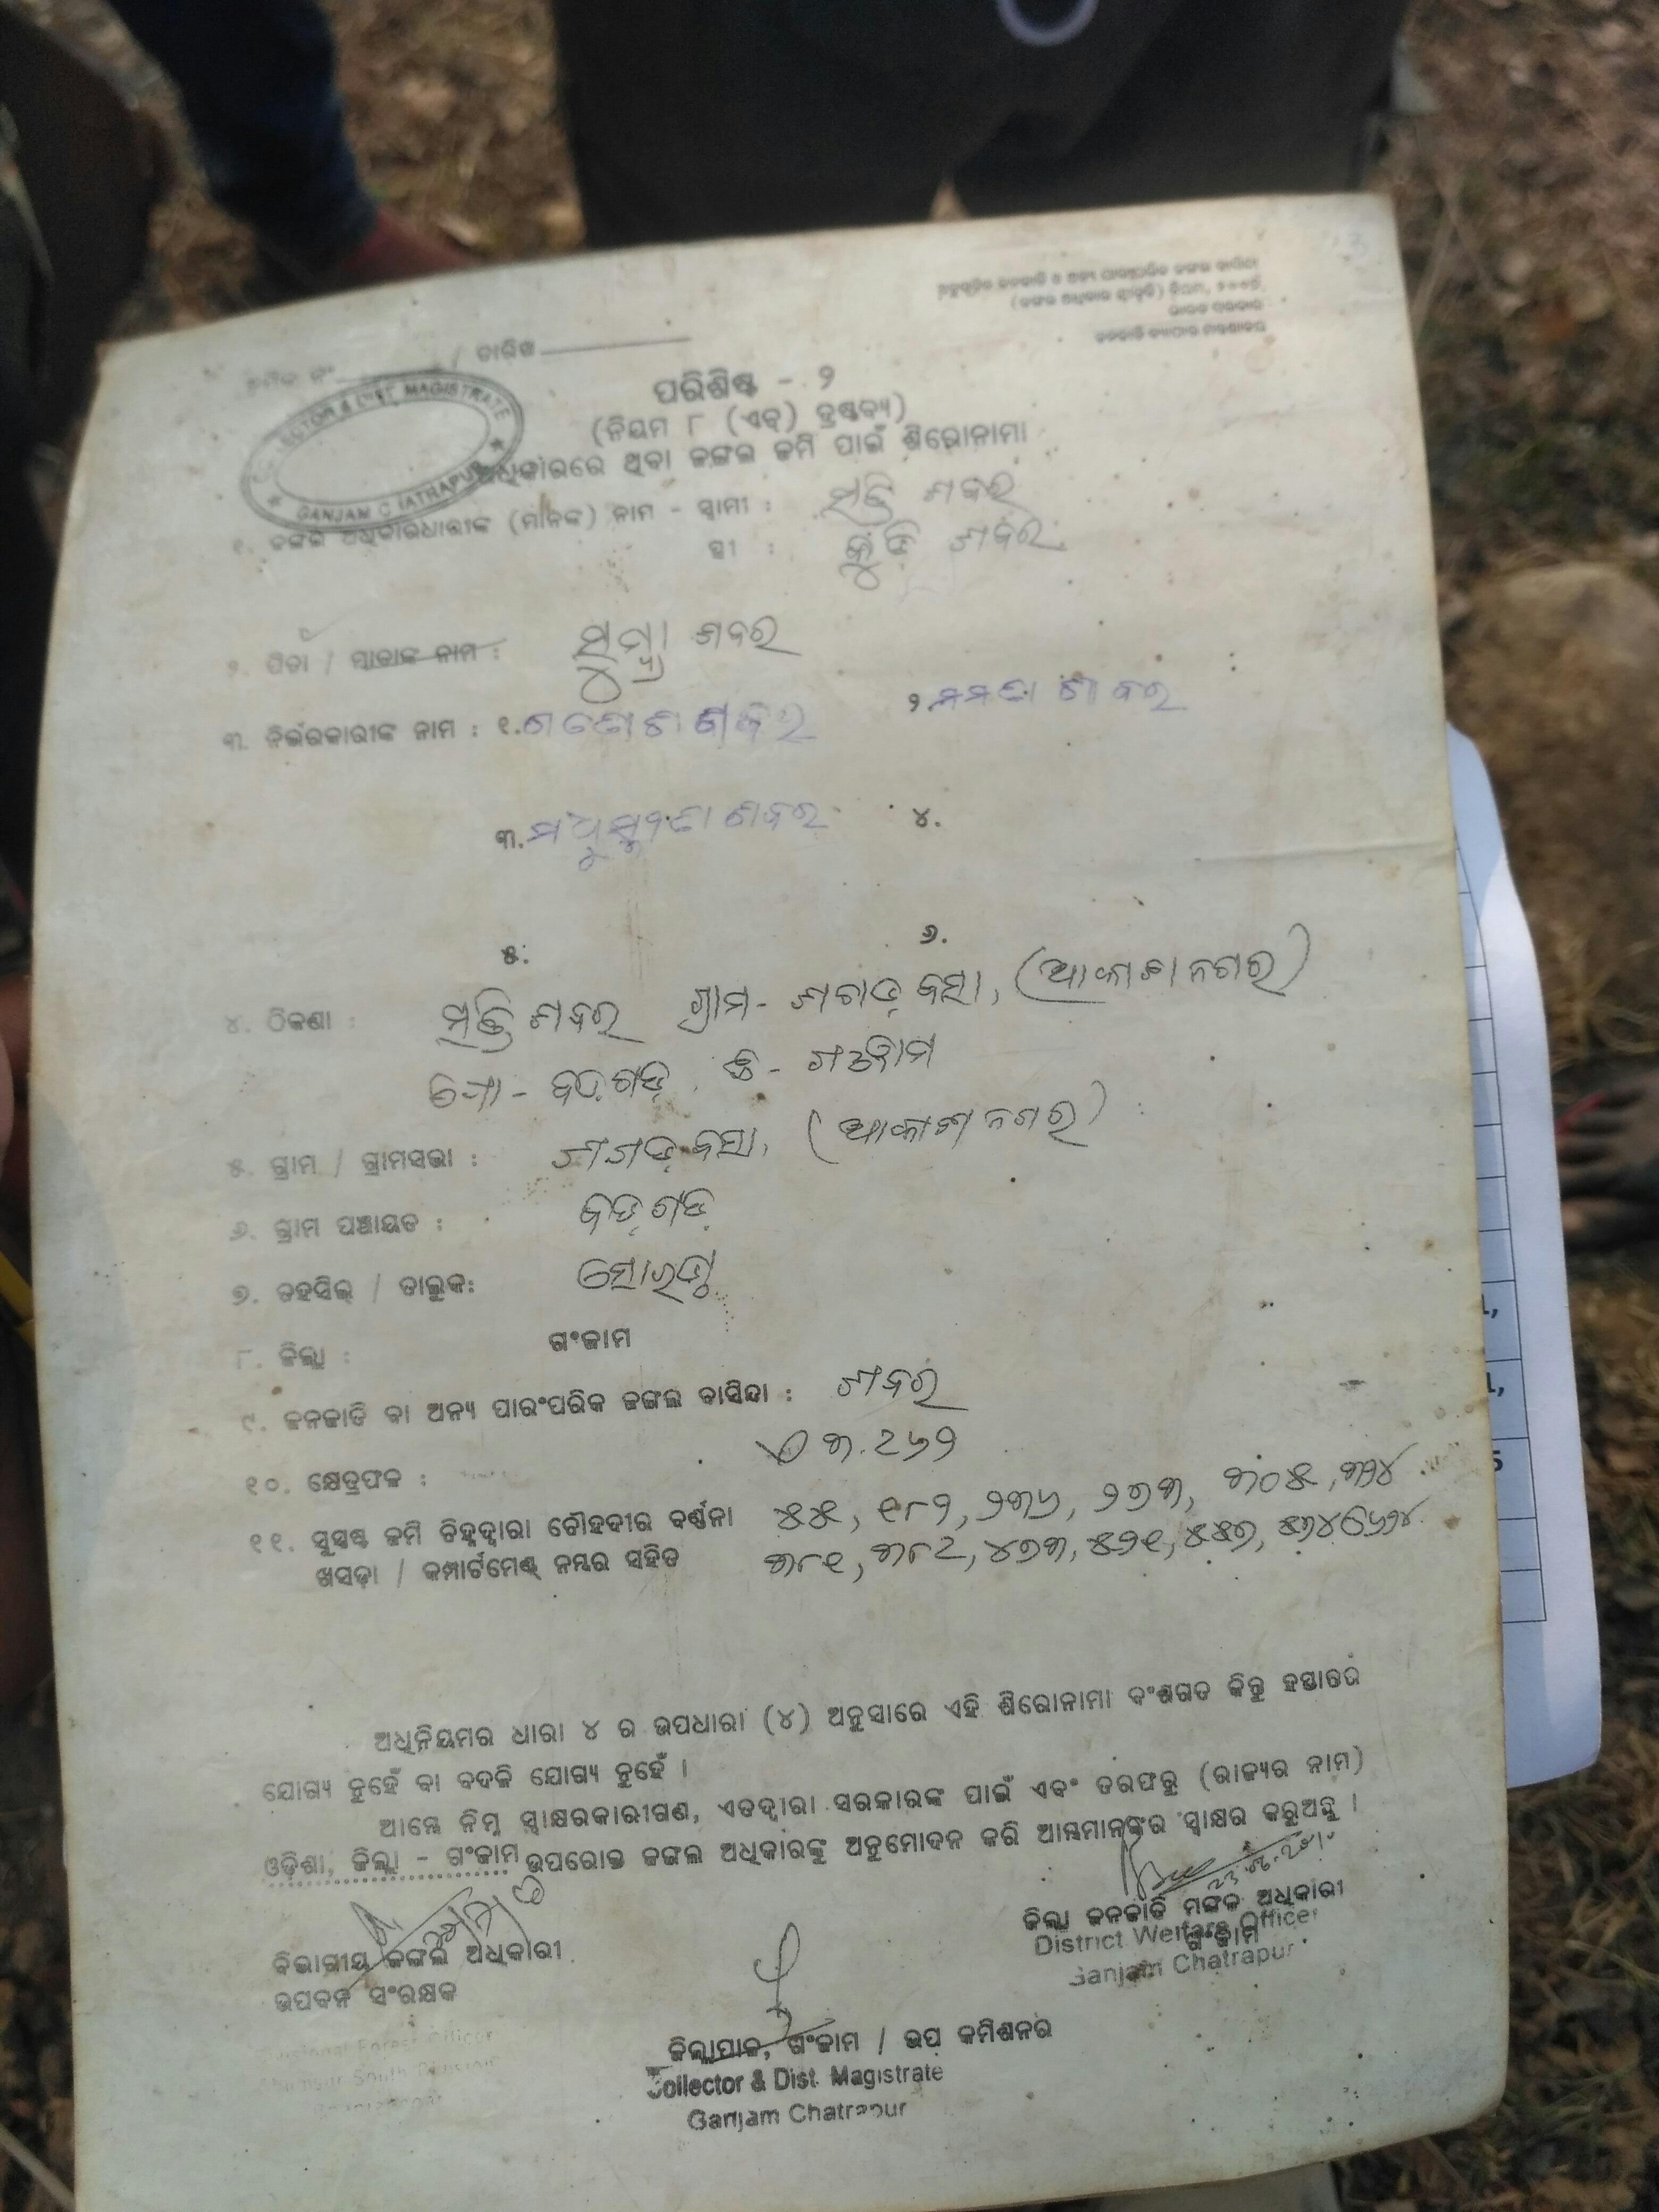 ଅନୁସୂଚିତ ଜନଜାତି ଓ ଅନ୍ୟ ପାରମ୍ପରିକ ଜଙ୍ଗଲ ବାସିନ୍ଦା
(ଜଙ୍ଗଲ ଅଧିକାର ସ୍ୱୀକୃତି) ନିୟମ, ୨୦୦୭
ଭାରତ ସରକାର
ଜନଜାତି ବ୍ୟାପାର ମନ୍ତ୍ରଣାଳୟ
କ୍ରମିକ ନଂ / ତାରିଖ
COLLECTOR & DIST. MAGISTRATE
GANJAM CHATRAPUR
ପରିଶିଷ୍ଟ - ୨
(ନିୟମ ୮ (ଏଚ୍) ଦ୍ରଷ୍ଟବ୍ୟ)
ଅଧିକାରରେ ଥିବା ଜଙ୍ଗଲ ଜମି ପାଇଁ ଶିରୋନାମା
୧. ଜଙ୍ଗଲ ଅଧିକାରଧାରୀଙ୍କ (ମାନଙ୍କ) ନାମ - ସ୍ୱାମୀ : ଶବର
ସ୍ତ୍ରୀ : ଶବର
୨. ପିତା / ମାତାଙ୍କ ନାମ : ଶବର
୩. ନିର୍ଭରକାରୀଙ୍କ ନାମ : ୧. ଶବର ୨. ମମତା ଶବର
୩. ଶବର ୪.
୫. ୬.
୪. ଠିକଣା : ଶବର ଗ୍ରାମ- ଶଗଡ଼ ବସା, (ଆକାଶ ନଗର)
ପୋ - ବଡ଼ଗଡ଼, ଜି - ଗଞ୍ଜାମ
୫. ଗ୍ରାମ / ଗ୍ରାମସଭା : ଶଗଡ଼ ବସା, (ଆକାଶ ନଗର)
୬. ଗ୍ରାମ ପଞ୍ଚାୟତ : ବଡ଼ ଗଡ଼
୭. ତହସିଲ୍ / ତାଲୁକ: ସୋରଡ଼ା
୮. ଜିଲ୍ଲା : ଗଂଜାମ
୯. ଜନଜାତି ବା ଅନ୍ୟ ପାରଂପରିକ ଜଙ୍ଗଲ ବାସିନ୍ଦା : ଶବର
୧୦. କ୍ଷେତ୍ରଫଳ : ୩.୯୬୨
୧୧. ସୁସ୍ପଷ୍ଟ ଜମି ଚିହ୍ନଦ୍ୱାରା ଚୌହଦୀର ବର୍ଣ୍ଣନା ୫୫, ୧୮୨, ୨୩୬, ୨୭୩, ୩୦୫, ୩୨୪
ଖସଡ଼ା / କମ୍ପାର୍ଟମେଣ୍ଟ୍ ନମ୍ବର ସହିତ ୩୮୧, ୩୮୯, ୪୭୩, ୫୨୧, ୫୫୭,
ଅଧିନିୟମର ଧାରା ୪ ର ଉପଧାରା (୪) ଅନୁସାରେ ଏହି ଶିରୋନାମା ବଂଶଗତ କିନ୍ତୁ ହସ୍ତାନ୍ତର
ଯୋଗ୍ୟ ନୁହେଁ ବା ବଦଳି ଯୋଗ୍ୟ ନୁହେଁ ।
ଆମ୍ଭେ ନିମ୍ନ ସ୍ୱାକ୍ଷରକାରୀଗଣ, ଏତଦ୍ୱାରା ସରକାରଙ୍କ ପାଇଁ ଏବଂ ତରଫରୁ (ରାଜ୍ୟର ନାମ)
ଓଡ଼ିଶା, ଜିଲ୍ଲା - ଗଂଜାମ ଉପରୋକ୍ତ ଜଙ୍ଗଲ ଅଧିକାରଙ୍କୁ ଅନୁମୋଦନ କରି ଆମ୍ଭମାନଙ୍କର ସ୍ୱାକ୍ଷର କରୁଅଛୁ ।
ଜିଲ୍ଲା ଜନଜାତି ମଙ୍ଗଳ ଅଧିକାରୀ
ଗଂଜାମ
District Welfare Officer
Ganjam Chatrapur
ବିଭାଗୀୟ ଜଙ୍ଗଲ ଅଧିକାରୀ
ଉପବନ ସଂରକ୍ଷକ
Divisional Forest Officer
Ghumsur South Division
ଜିଲ୍ଲାପାଳ, ଗଂଜାମ / ଉପ କମିଶନର
Collector & Dist. Magistrate
Ganjam Chatrapur